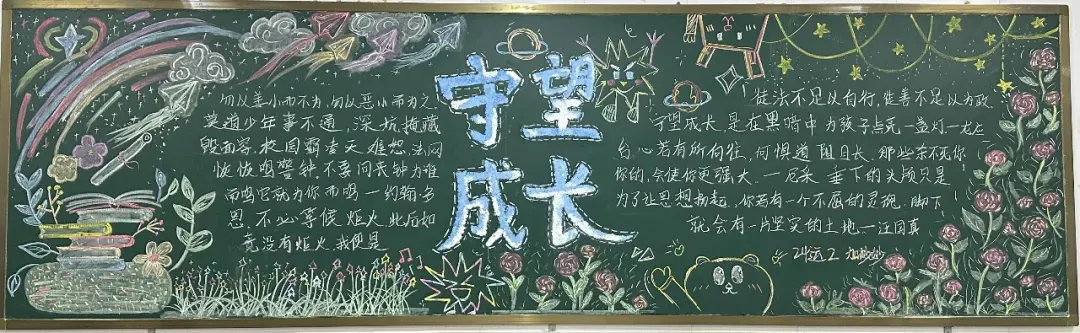 守望
成长
勿以善小而不为,勿以恶小而为之
莫道少年事不通,深坑掩藏
毁面容,校园霸凌天难恕,法网
恢恢鸣警钟,不要问丧钟为谁
而鸣它就为你而鸣—约翰·多
恩.不必等候炬火,此后如
竟没有炬火.我便是
徒法不足以自行,徒善不足以为政
守望成长,是在黑暗中为孩子点亮一盏灯—龙应
台心若有所向往,何惧道阻且长.那些杀不死你
你的,会使你更强大.一尼采 垂下的头颅只是
为了让思想扬起,你若有一个不屈的灵魂.脚下
就会有一片坚实的土地—汪国真